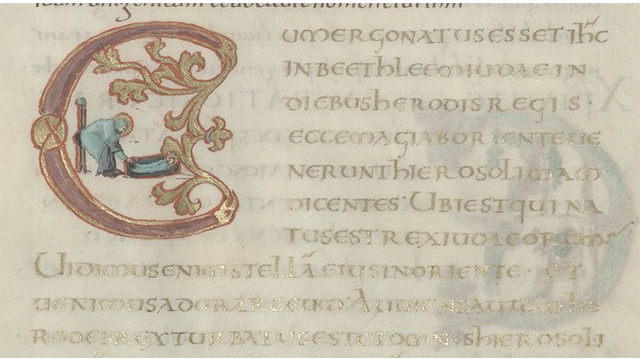 CUM ERGO NATUS ESSET IH̄C
IN BEETHLEEM IUDAE IN
DIEBUS HERODIS REGIS ·
ECCE MAGI AB ORIENTE UE
NERUNT HIEROSOLIMAM
DICENTES · UBI EST QUI NA
TUS EST REX IUDEORUM
UIDIMUS ENIM STELLĀ EIUS IN ORIENTE · ET
UENIMUS ADORARE EUM AUDIENS AUTEM HE
RODES REX TURBATUS EST ET OMNIS HIEROSOLI